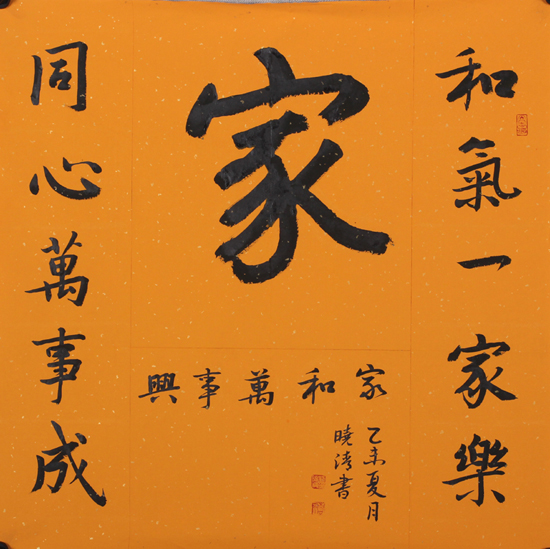 和氣一家樂
家
同心萬事成
家和萬事興
乙未夏月
曉清書